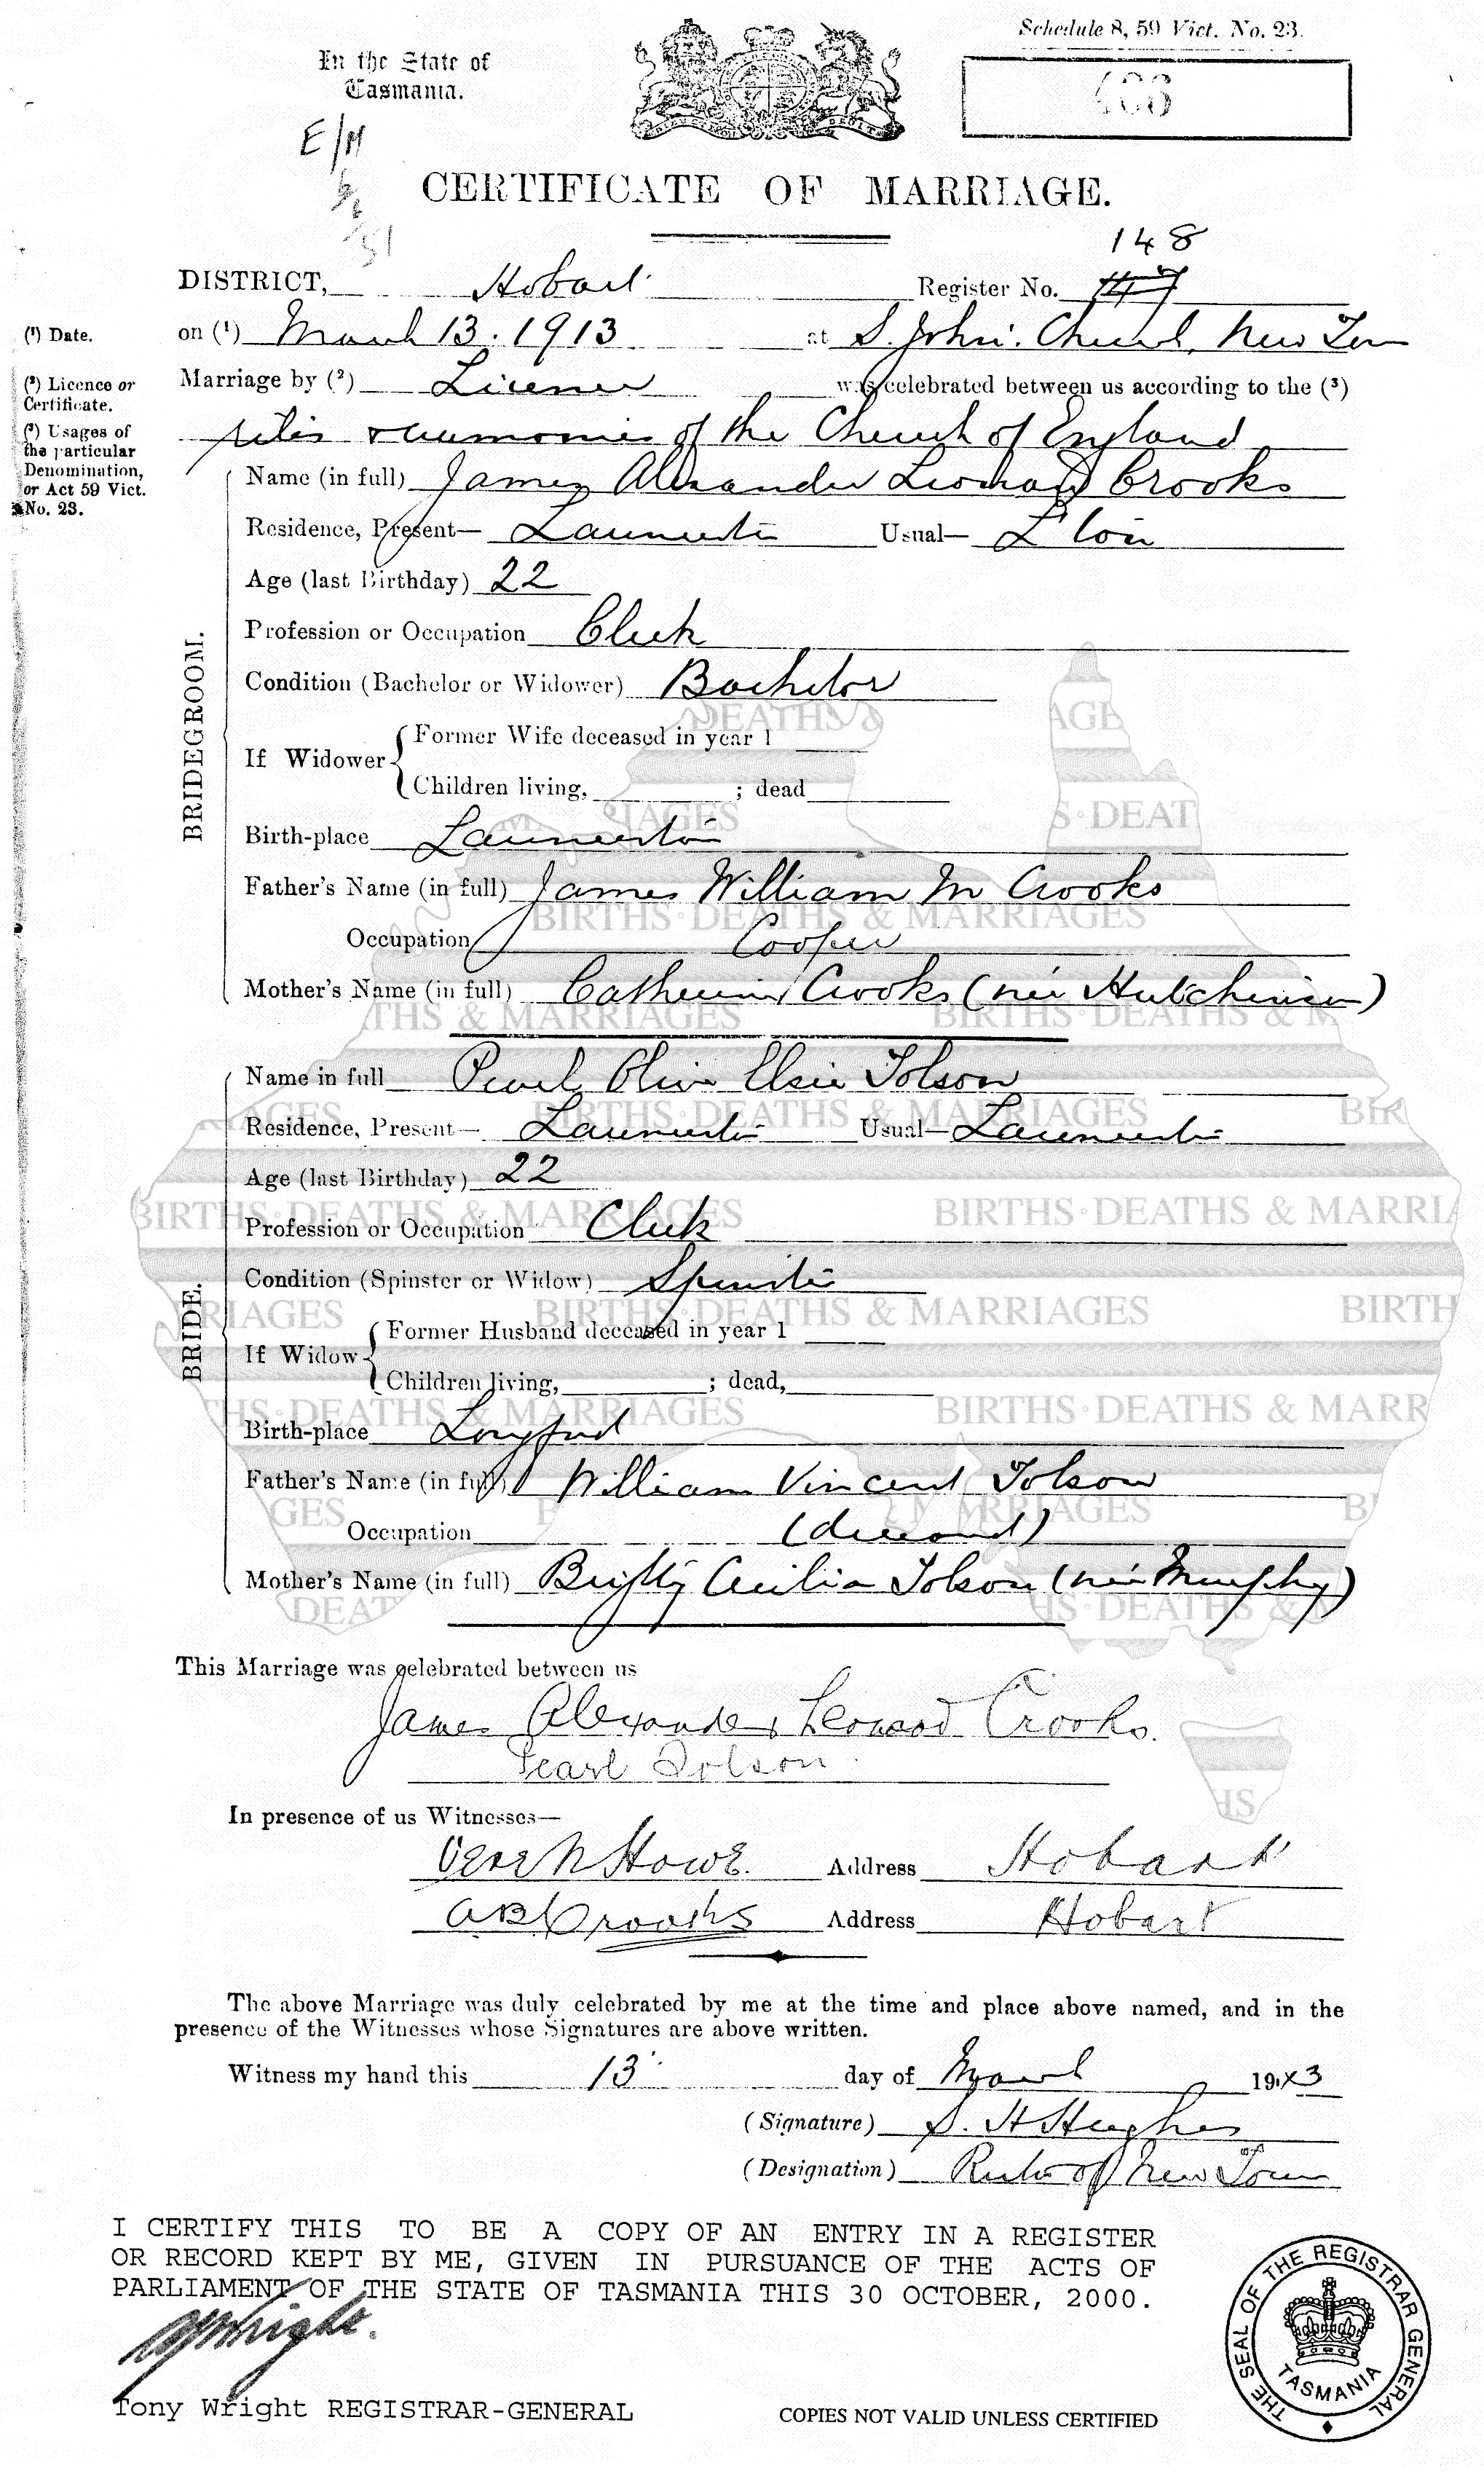 Schedule 8, 59 Vict. No. 23.
In the State of
Tasmania.
E/M
CERTIFICATE OF MARRIAGE.
148
DISTRICT, Hobart Register No. 147
(¹) Date. on (¹) March 13. 1913 at S. John's Church, New Town
(²) Licence or Certificate. Marriage by (²) License was celebrated between us according to the (³)
(³) Usages of the particular Denomination, or Act 59 Vict. No. 23.
rites & ceremonies of the Church of England
BRIDEGROOM.
Name (in full) James Alexander Leonard Crooks
Residence, Present— Launceston Usual— L'ton
Age (last Birthday) 22
Profession or Occupation Clerk
Condition (Bachelor or Widower) Bachelor
If Widower
Former Wife deceased in year 1
Children living, ; dead
Birth-place Launceston
Father's Name (in full) James William M Crooks
Occupation Cooper
Mother's Name (in full) Catherine Crooks (née Hutchinson)
BRIDE.
Name in full Pearl Olive Elsie Tolson
Residence, Present— Launceston Usual— Launceston
Age (last Birthday) 22
Profession or Occupation Clerk
Condition (Spinster or Widow) Spinster
If Widow
Former Husband deceased in year 1
Children living, ; dead,
Birth-place Longford
Father's Name (in full) William Vincent Tolson
Occupation (deceased)
Mother's Name (in full) Cecilia Tolson (née Murphy)
This Marriage was celebrated between us
James Alexander Leonard Crooks.
Pearl Tolson.
In presence of us Witnesses—
Vere N Howe. Address Hobart
A B Crooks Address Hobart
The above Marriage was duly celebrated by me at the time and place above named, and in the
presence of the Witnesses whose Signatures are above written.
Witness my hand this 13 day of March 1913
(Signature) S. H Hughes
(Designation) Rector of New Town
I CERTIFY THIS TO BE A COPY OF AN ENTRY IN A REGISTER
OR RECORD KEPT BY ME, GIVEN IN PURSUANCE OF THE ACTS OF
PARLIAMENT OF THE STATE OF TASMANIA THIS 30 OCTOBER, 2000.
Tony Wright REGISTRAR-GENERAL
COPIES NOT VALID UNLESS CERTIFIED
THE SEAL OF THE REGISTRAR GENERAL
TASMANIA
BIRTHS·DEATHS & MARRIAGES